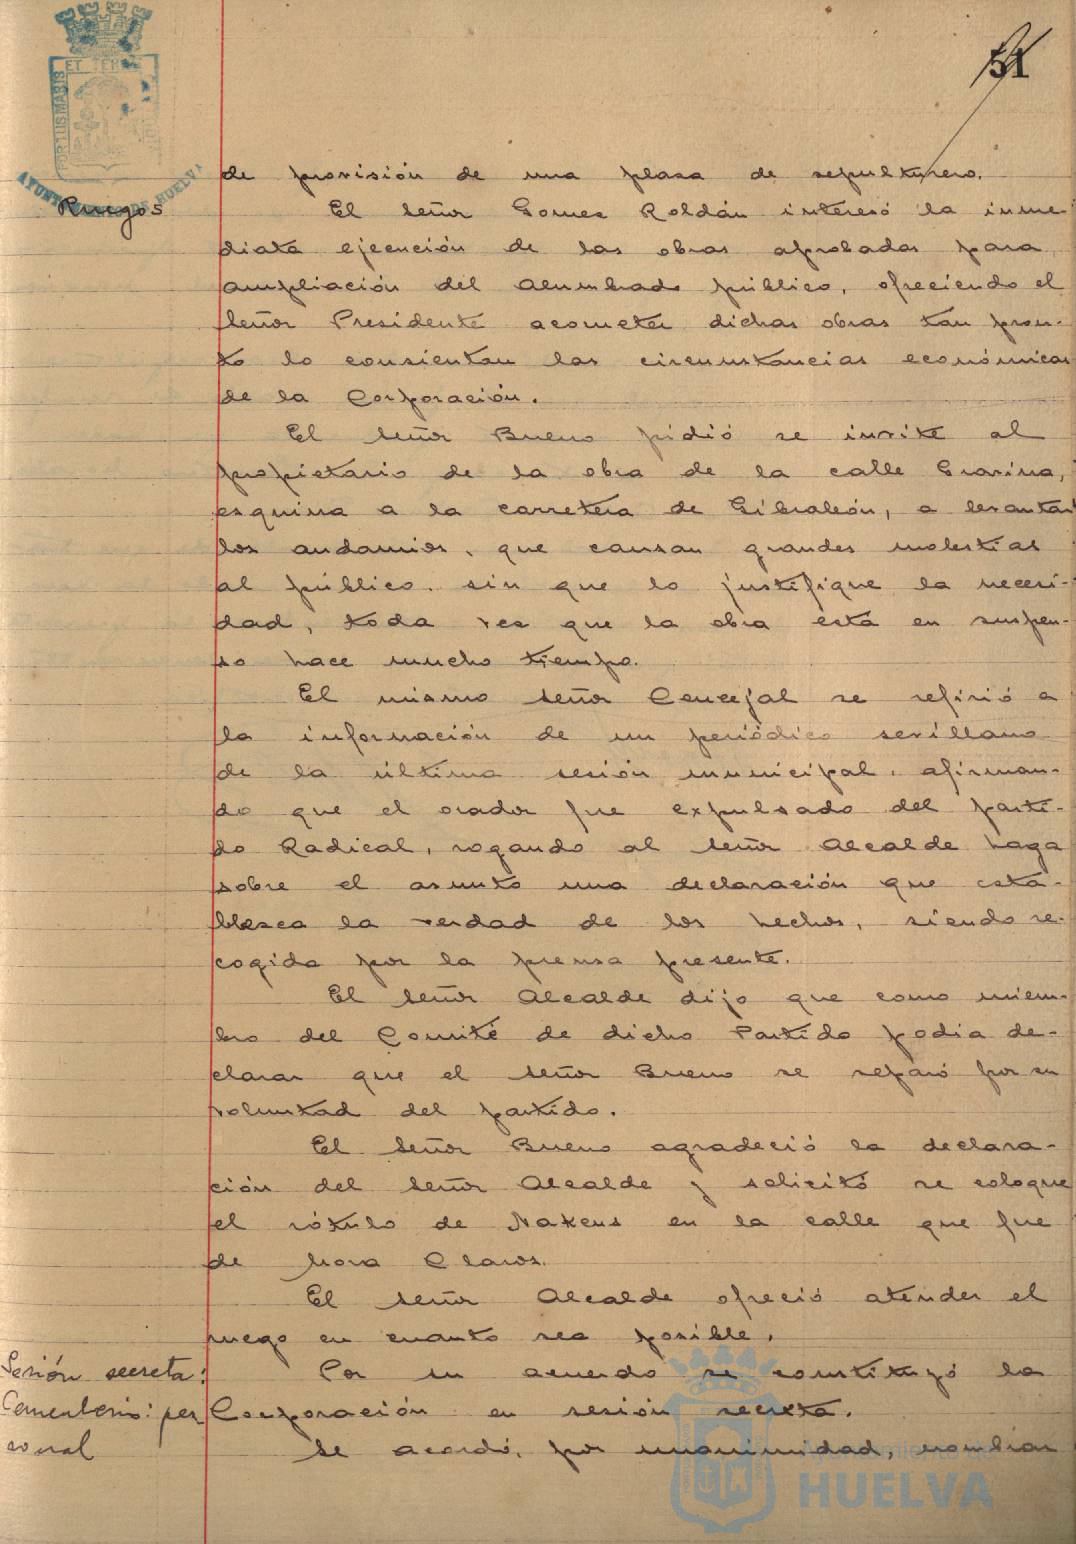 51
ET TERRE
PORTUS MARIS
AYUNTAMIENTO DE HUELVA
de provisión de una plasa de sepulturero.
Ruegos
El Señor Gomez Roldán interesó la inme-
diata ejecución de las obras aprobadas para
ampliación del alumbrado público, ofreciendo el
Señor Presidente acometer dichas obras tan pron-
to lo consientan las circunstancias económicas
de la Corporación.
El Señor Bueno pidió se invite al
propietario de la obra de la calle Gravina,
esquina a la carretera de Gibraleón, a levantar
los andamios, que causan grandes molestias
al público, sin que lo justifique la necesi-
dad, toda vez que la obra está en suspen-
so hace mucho tiempo.
El mismo Señor Concejal se refirió a
la información de un periódico sevillano
de la última sesión municipal, afirman-
do que el orador fue expulsado del parti-
do Radical, rogando al Señor Alcalde haga
sobre el asunto una declaración que esta-
blezca la verdad de los hechos, siendo re-
cogida por la prensa presente.
El Señor Alcalde dijo que como miem-
bro del Comité de dicho Partido podia de-
clarar que el Señor Bueno se separó por su
voluntad del partido.
El Señor Bueno agradeció la declara-
ción del Señor Alcalde y solicitó se coloque
el rótulo de Nakens en la calle que fue
de Mora Claros.
El Señor Alcalde ofreció atender el
ruego en cuanto sea posible.
Sesión secreta:
Por su acuerdo se constituyó la
Cementerio: per
sonal
Corporación en sesión secreta.
Se acordó, por unanimidad, nombrar
Ayuntamiento de
HUELVA